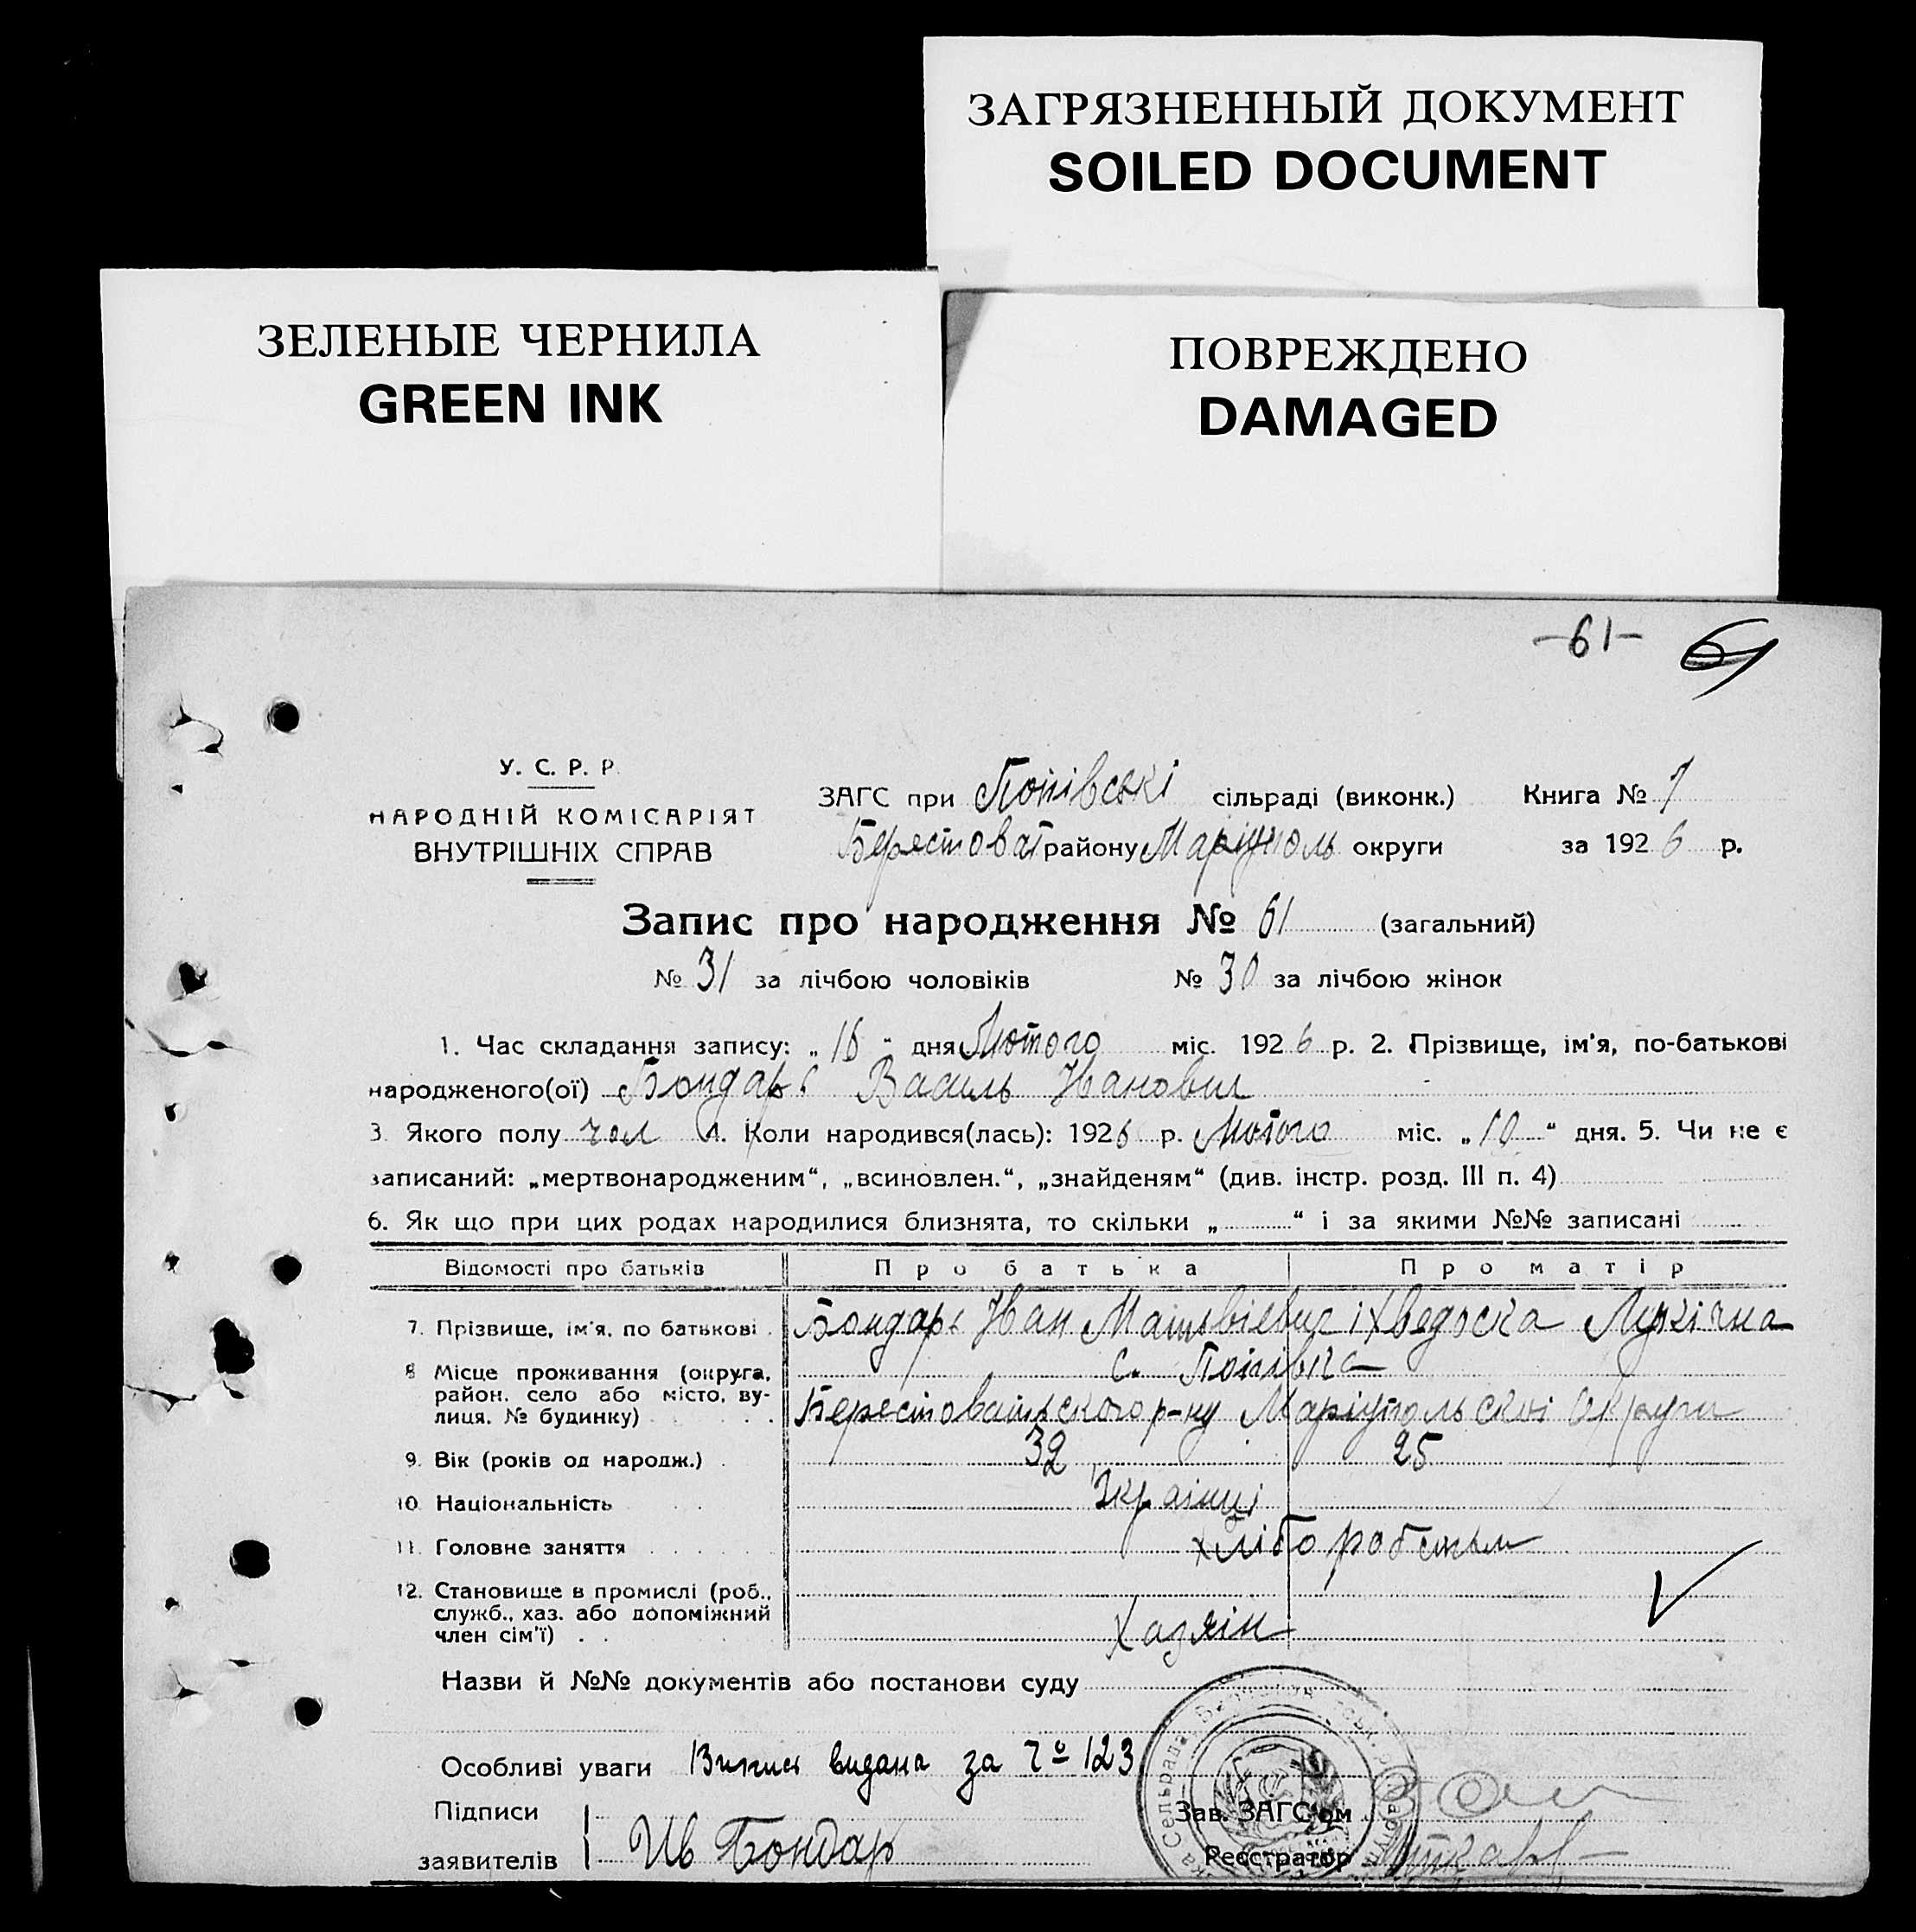 ЗАГРЯЗНЕННЫЙ ДОКУМЕНТ
SOILED DOCUMENT
ЗЕЛЕНЫЕ ЧЕРНИЛА
GREEN INK
ПОВРЕЖДЕНО
DAMAGED
-61- 61
У. С. Р. Р.
НАРОДНІЙ КОМІСАРІЯТ
ВНУТРІШНІХ СПРАВ
ЗАГС при Попівські сільраді (виконк.) Книга № 1
Берестоват району Маріуполь округи за 1926 р.
Запис про народження № 61 (загальний)
№ 31 за лічбою чоловіків № 30 за лічбою жінок
1. Час складання запису: „16“ дня Лютого міс. 1926 р. 2. Прізвище, ім'я, по-батькові
народженого(ої) Бондарь Василь Іванович
3 Якого полу чол 4. Коли народився(лась): 1926 р. Лютого міс. „10“ дня. 5. Чи не є
записаний: „мертвонародженим“, „всиновлен.“, „знайденям“ (див. інстр. розд. III п. 4)
6. Як що при цих родах народилися близнята, то скільки „ “ і за якими №№ записані
Відомості про батьків Про батька Про матір
7. Прізвище, ім'я, по батькові Бондарь Іван Матвієвич і Хведоска
8 Місце проживання (округа, район, село або місто, вулиця, № будинку) с.
Берестоватьского р-ну Маріупольскоі Округи
9. Вік (років од народж.) 32 25
10 Національність Українці
11. Головне заняття хліборобством
12. Становище в промислі (роб.,
служб., хаз. або допоміжний
член сім'ї) Хазяін
Назви й №№ документів або постанови суду
Особливі уваги Випис видана за № 123
Підписи
заявителів Ив Бондар
Зав. ЗАГС'ом
Реєстратор